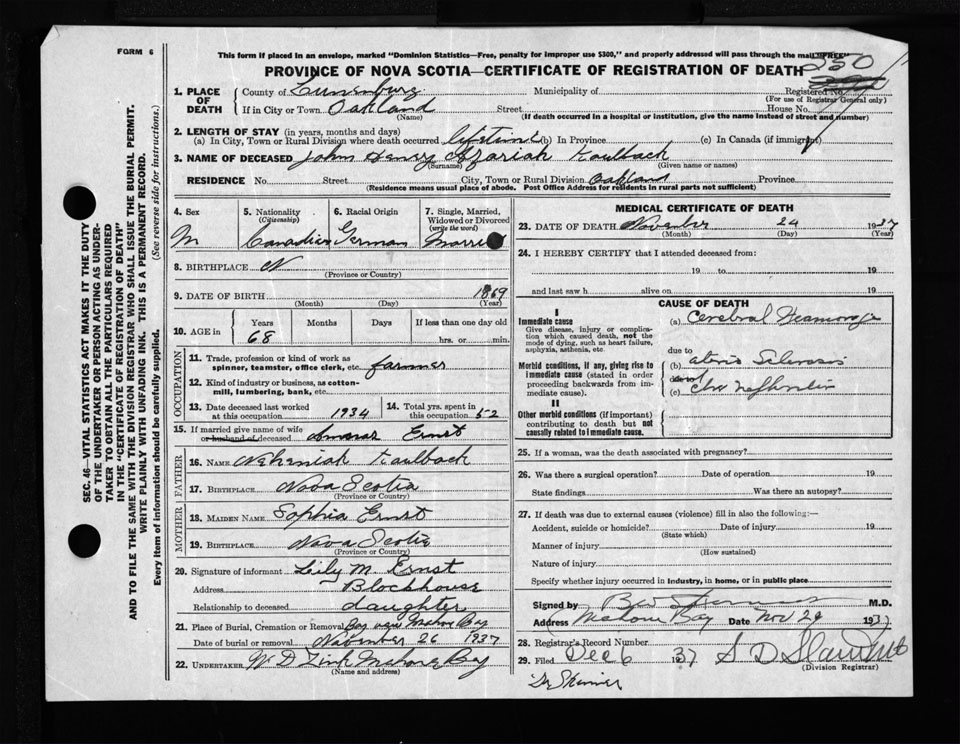 FORM 6
This form if placed in an envelope, marked "Dominion Statistics—Free, penalty for improper use $300," and properly addressed will pass through the mail "FREE"
PROVINCE OF NOVA SCOTIA—CERTIFICATE OF REGISTRATION OF DEATH
250
1. PLACE OF DEATH
County of Lunenburg Municipality of Registered No.
(For use of Registrar General only)
If in City or Town Oakland Street House No.
(Name) (If death occurred in a hospital or institution, give the name instead of street and number)
2. LENGTH OF STAY (in years, months and days)
(a) In City, Town or Rural Division where death occurred lifetime (b) In Province (c) In Canada (if immigrant)
3. NAME OF DECEASED John Henry Azariah Kaulback
(Surname) (Given name or names)
RESIDENCE No. Street City, Town or Rural Division Oakland Province
(Residence means usual place of abode. Post Office Address for residents in rural parts not sufficient)
SEC. 46—VITAL STATISTICS ACT MAKES IT THE DUTY
OF THE UNDERTAKER OR PERSON ACTING AS UNDER-
TAKER TO OBTAIN ALL THE PARTICULARS REQUIRED
IN THE "CERTIFICATE OF REGISTRATION OF DEATH"
AND TO FILE THE SAME WITH THE DIVISION REGISTRAR WHO SHALL ISSUE THE BURIAL PERMIT.
WRITE PLAINLY WITH UNFADING INK. THIS IS A PERMANENT RECORD.
Every item of information should be carefully supplied. (See reverse side for instructions.)
4. Sex
M
5. Nationality
(Citizenship)
Canadian
6. Racial Origin
German
7. Single, Married,
Widowed or Divorced
(write the word)
Married
8. BIRTHPLACE N
(Province or Country)
9. DATE OF BIRTH 1869
(Month) (Day) (Year)
10. AGE in
Years Months Days If less than one day old
68 hrs. or min.
OCCUPATION
11. Trade, profession or kind of work as
spinner, teamster, office clerk, etc. farmer
12. Kind of industry or business, as cotton-
mill, lumbering, bank, etc.
13. Date deceased last worked
at this occupation 1934
14. Total yrs. spent in
this occupation 52
15. If married give name of wife
or husband of deceased Ernst
FATHER
16. NAME Nehemiah Kaulback
17. BIRTHPLACE Nova Scotia
(Province or Country)
MOTHER
18. MAIDEN NAME Sophia Ernst
19. BIRTHPLACE Nova Scotia
(Province or Country)
20. Signature of informant Lily M. Ernst
Address Blockhouse
Relationship to deceased daughter
21. Place of Burial, Cremation or Removal Mahone Bay
Date of burial or removal November 26 1937
22. UNDERTAKER W D Zink Mahone Bay
(Name and address)
MEDICAL CERTIFICATE OF DEATH
23. DATE OF DEATH November 24 1937
(Month) (Day) (Year)
24. I HEREBY CERTIFY that I attended deceased from:
19 to 19
and last saw h alive on 19
CAUSE OF DEATH
I
Immediate cause
Give disease, injury or complica-
tion which caused death, not the
mode of dying, such as heart failure,
asphyxia, asthenia, etc.
(a) Cerebral Heamorage
due to
Morbid conditions, if any, giving rise to
immediate cause (stated in order
proceeding backwards from im-
mediate cause).
(b) Sclerosis
(c)
II
Other morbid conditions (if important)
contributing to death but not
causally related to immediate cause.
25. If a woman, was the death associated with pregnancy?
26. Was there a surgical operation? Date of operation 19
State findings Was there an autopsy?
27. If death was due to external causes (violence) fill in also the following:—
Accident, suicide or homicide? Date of injury 19
(State which)
Manner of injury
(How sustained)
Nature of injury
Specify whether injury occurred in industry, in home, or in public place
Signed by M.D.
Address Mahone Bay Date Nov 29 1937
28. Registrar's Record Number
29. Filed Dec 6 37 S D
(Division Registrar)